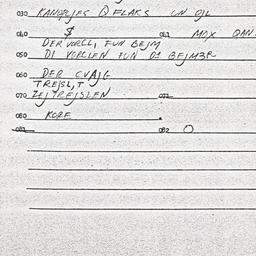 030 KANOPLIES & FLAKS UN OJL
040 $ 041 MAX DAN
DER VORCL, FUN BEJM
050 DI VORCLEN FUN DI BEJMER
060 DER CVAJG
TREJSL, T
070 ZEJ TREJSLEN 071
080 KORE
081 082 O